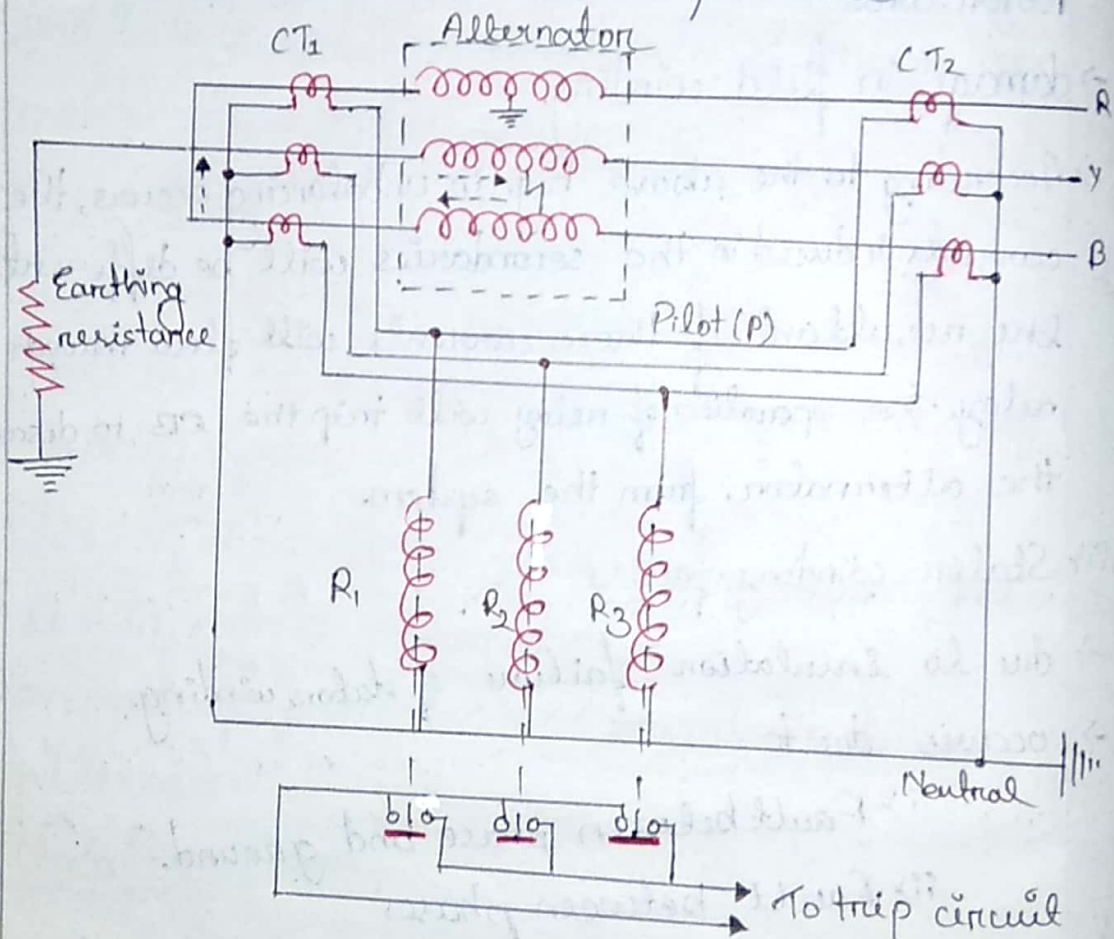 CT1
Alternator
CT2
R
Y
B
Earthing
resistance
Pilot (P)
R1
R2
R3
Neutral
To trip circuit